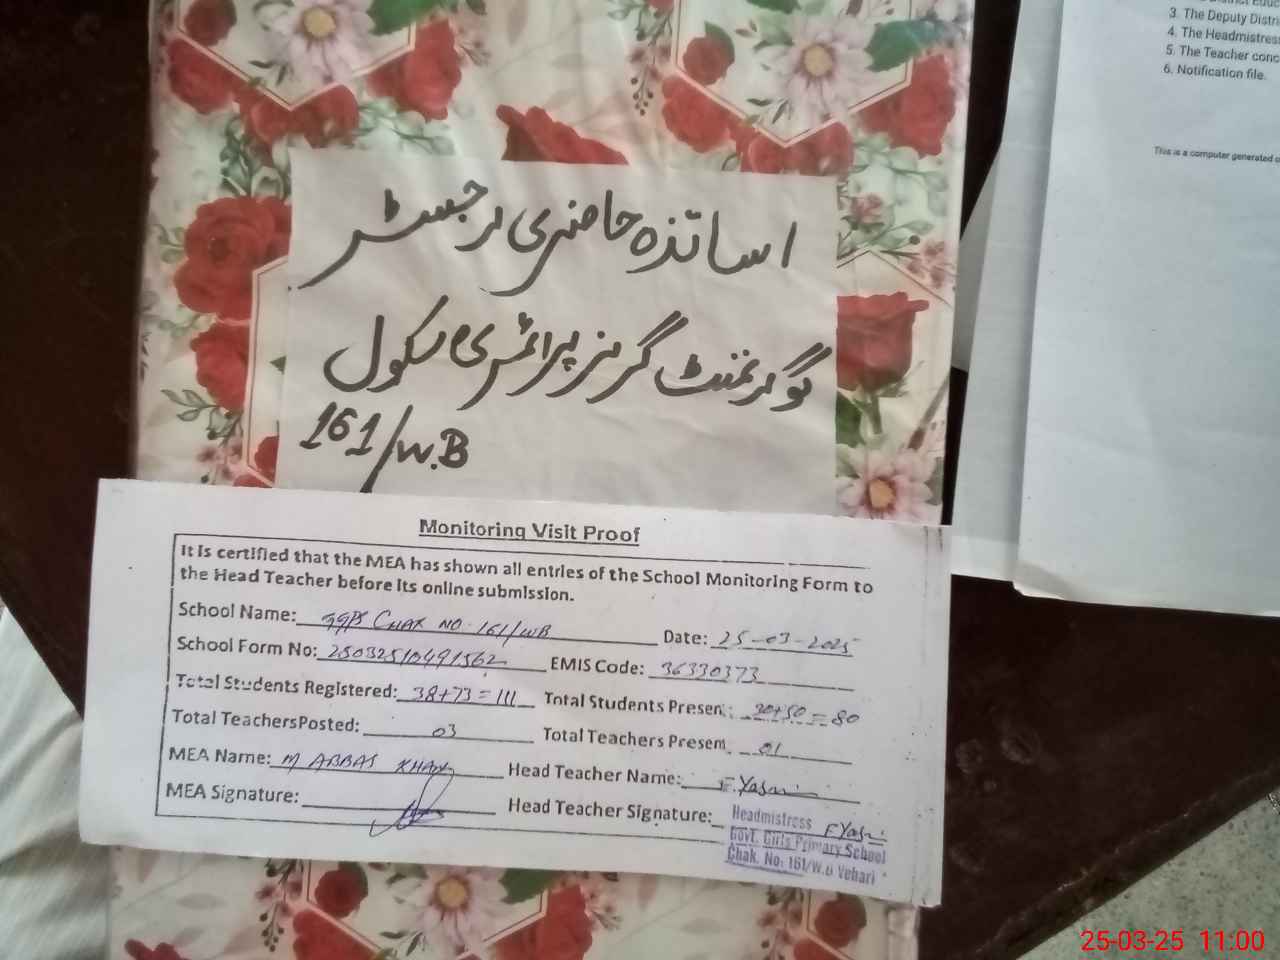 District Educ
3. The Deputy Distri
4. The Headmistress
5. The Teacher conc
6. Notification file.
This is a computer generated
اساتذہ حاضری رجسٹر
گورنمنٹ گرلز پرائمری سکول
161/W.B
Monitoring Visit Proof
It is certified that the MEA has shown all entries of the School Monitoring Form to
the Head Teacher before its online submission.
School Name: GGPS CHAK NO. 161/WB Date: 25-03-2025
School Form No: 25032510491562 EMIS Code: 36330373
Total Students Registered: 38+73=111 Total Students Presen: 30+50=80
Total TeachersPosted: 03 Total Teachers Presen 01
MEA Name: M ABBAS KHAN Head Teacher Name: F. Yasmin
MEA Signature: Head Teacher Signature:
Headmistress
Govt. Girls Primary School
Chak. No: 161/W.B Vehari
25-03-25 11:00